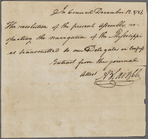 In Council December 12. 1786
The resolution of the general assembly re-
specting the navigation of the Missisippi
as transmitted to our Delegates in Congress
Extract from the journal
Attest